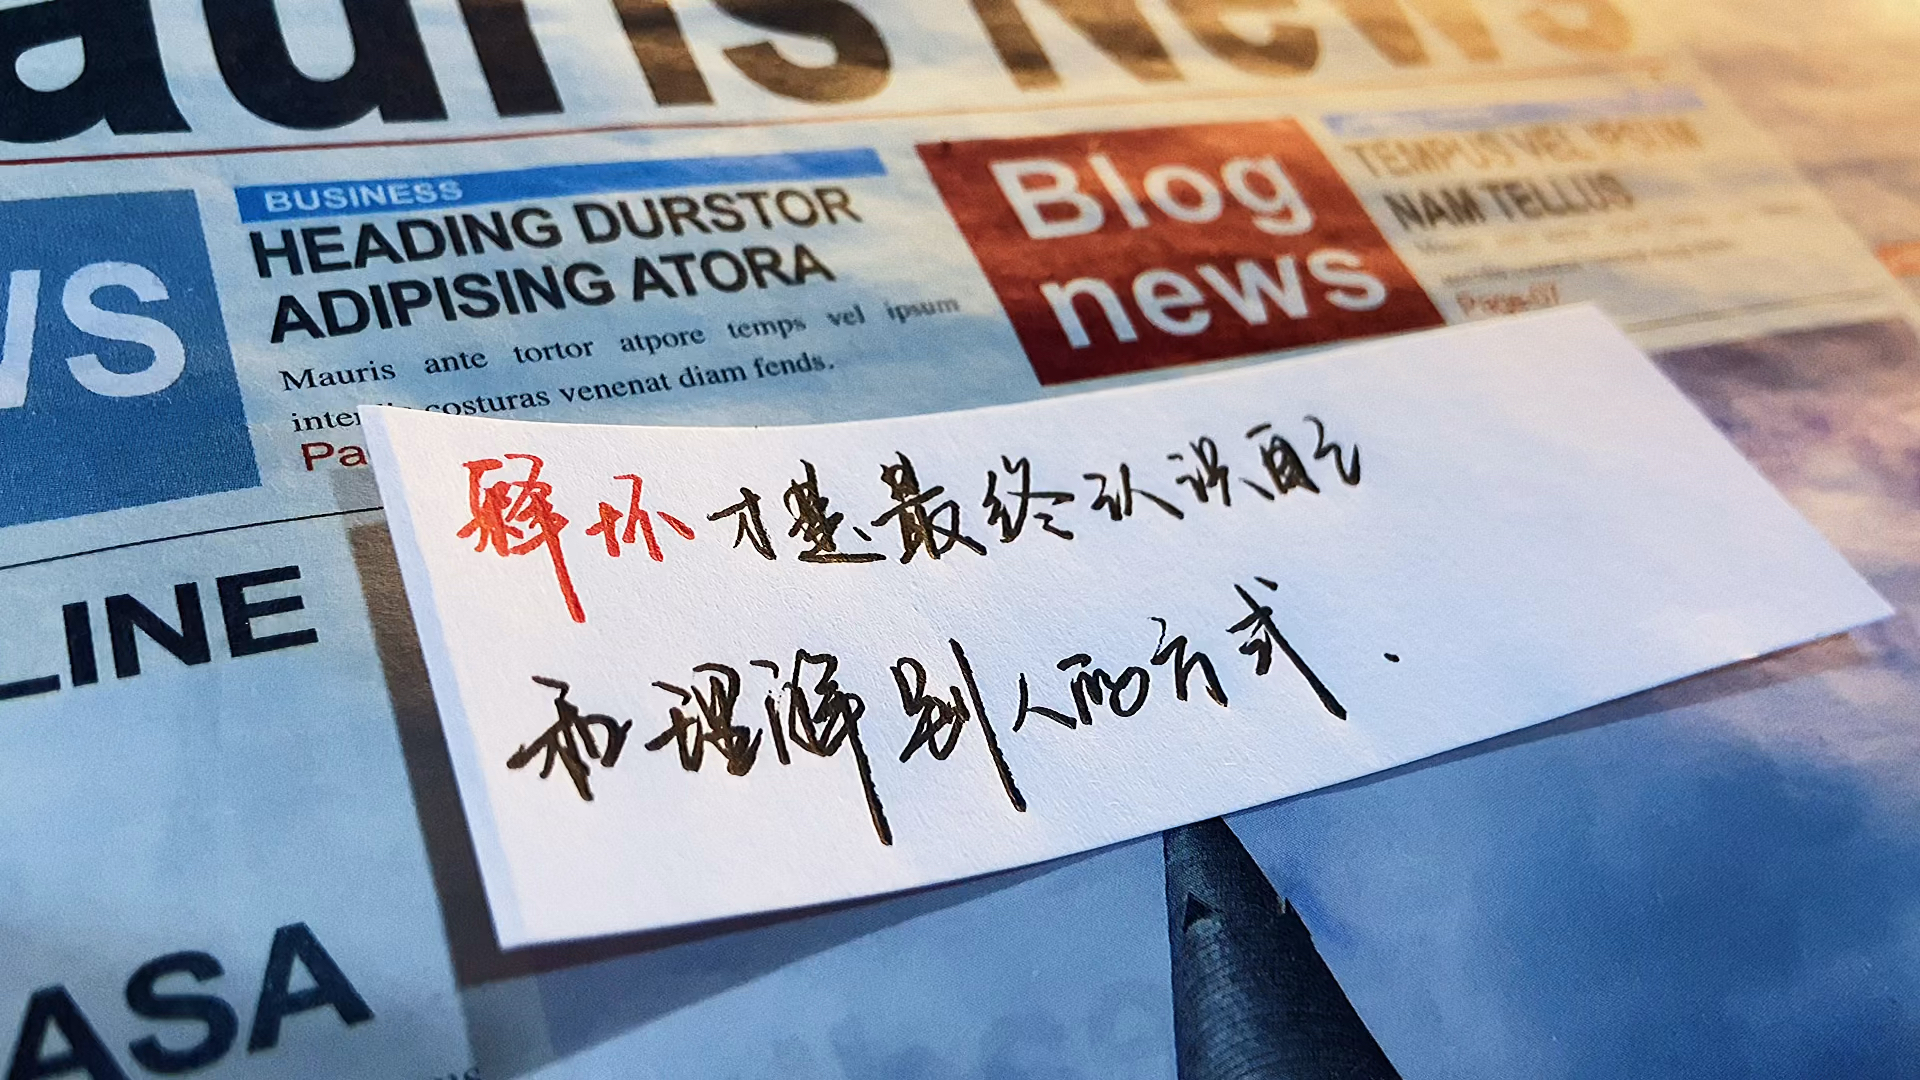 auris News
BUSINESS
HEADING DURSTOR
ADIPISING ATORA
Mauris ante tortor atpore temps vel ipsum
costuras venenat diam fends.
Pa
Blog
news
TEMPUS VEL IPSUM
NAM TELLUS
WS
释怀才是最终认识自己
和理解别人的方式.
LINE
ASA